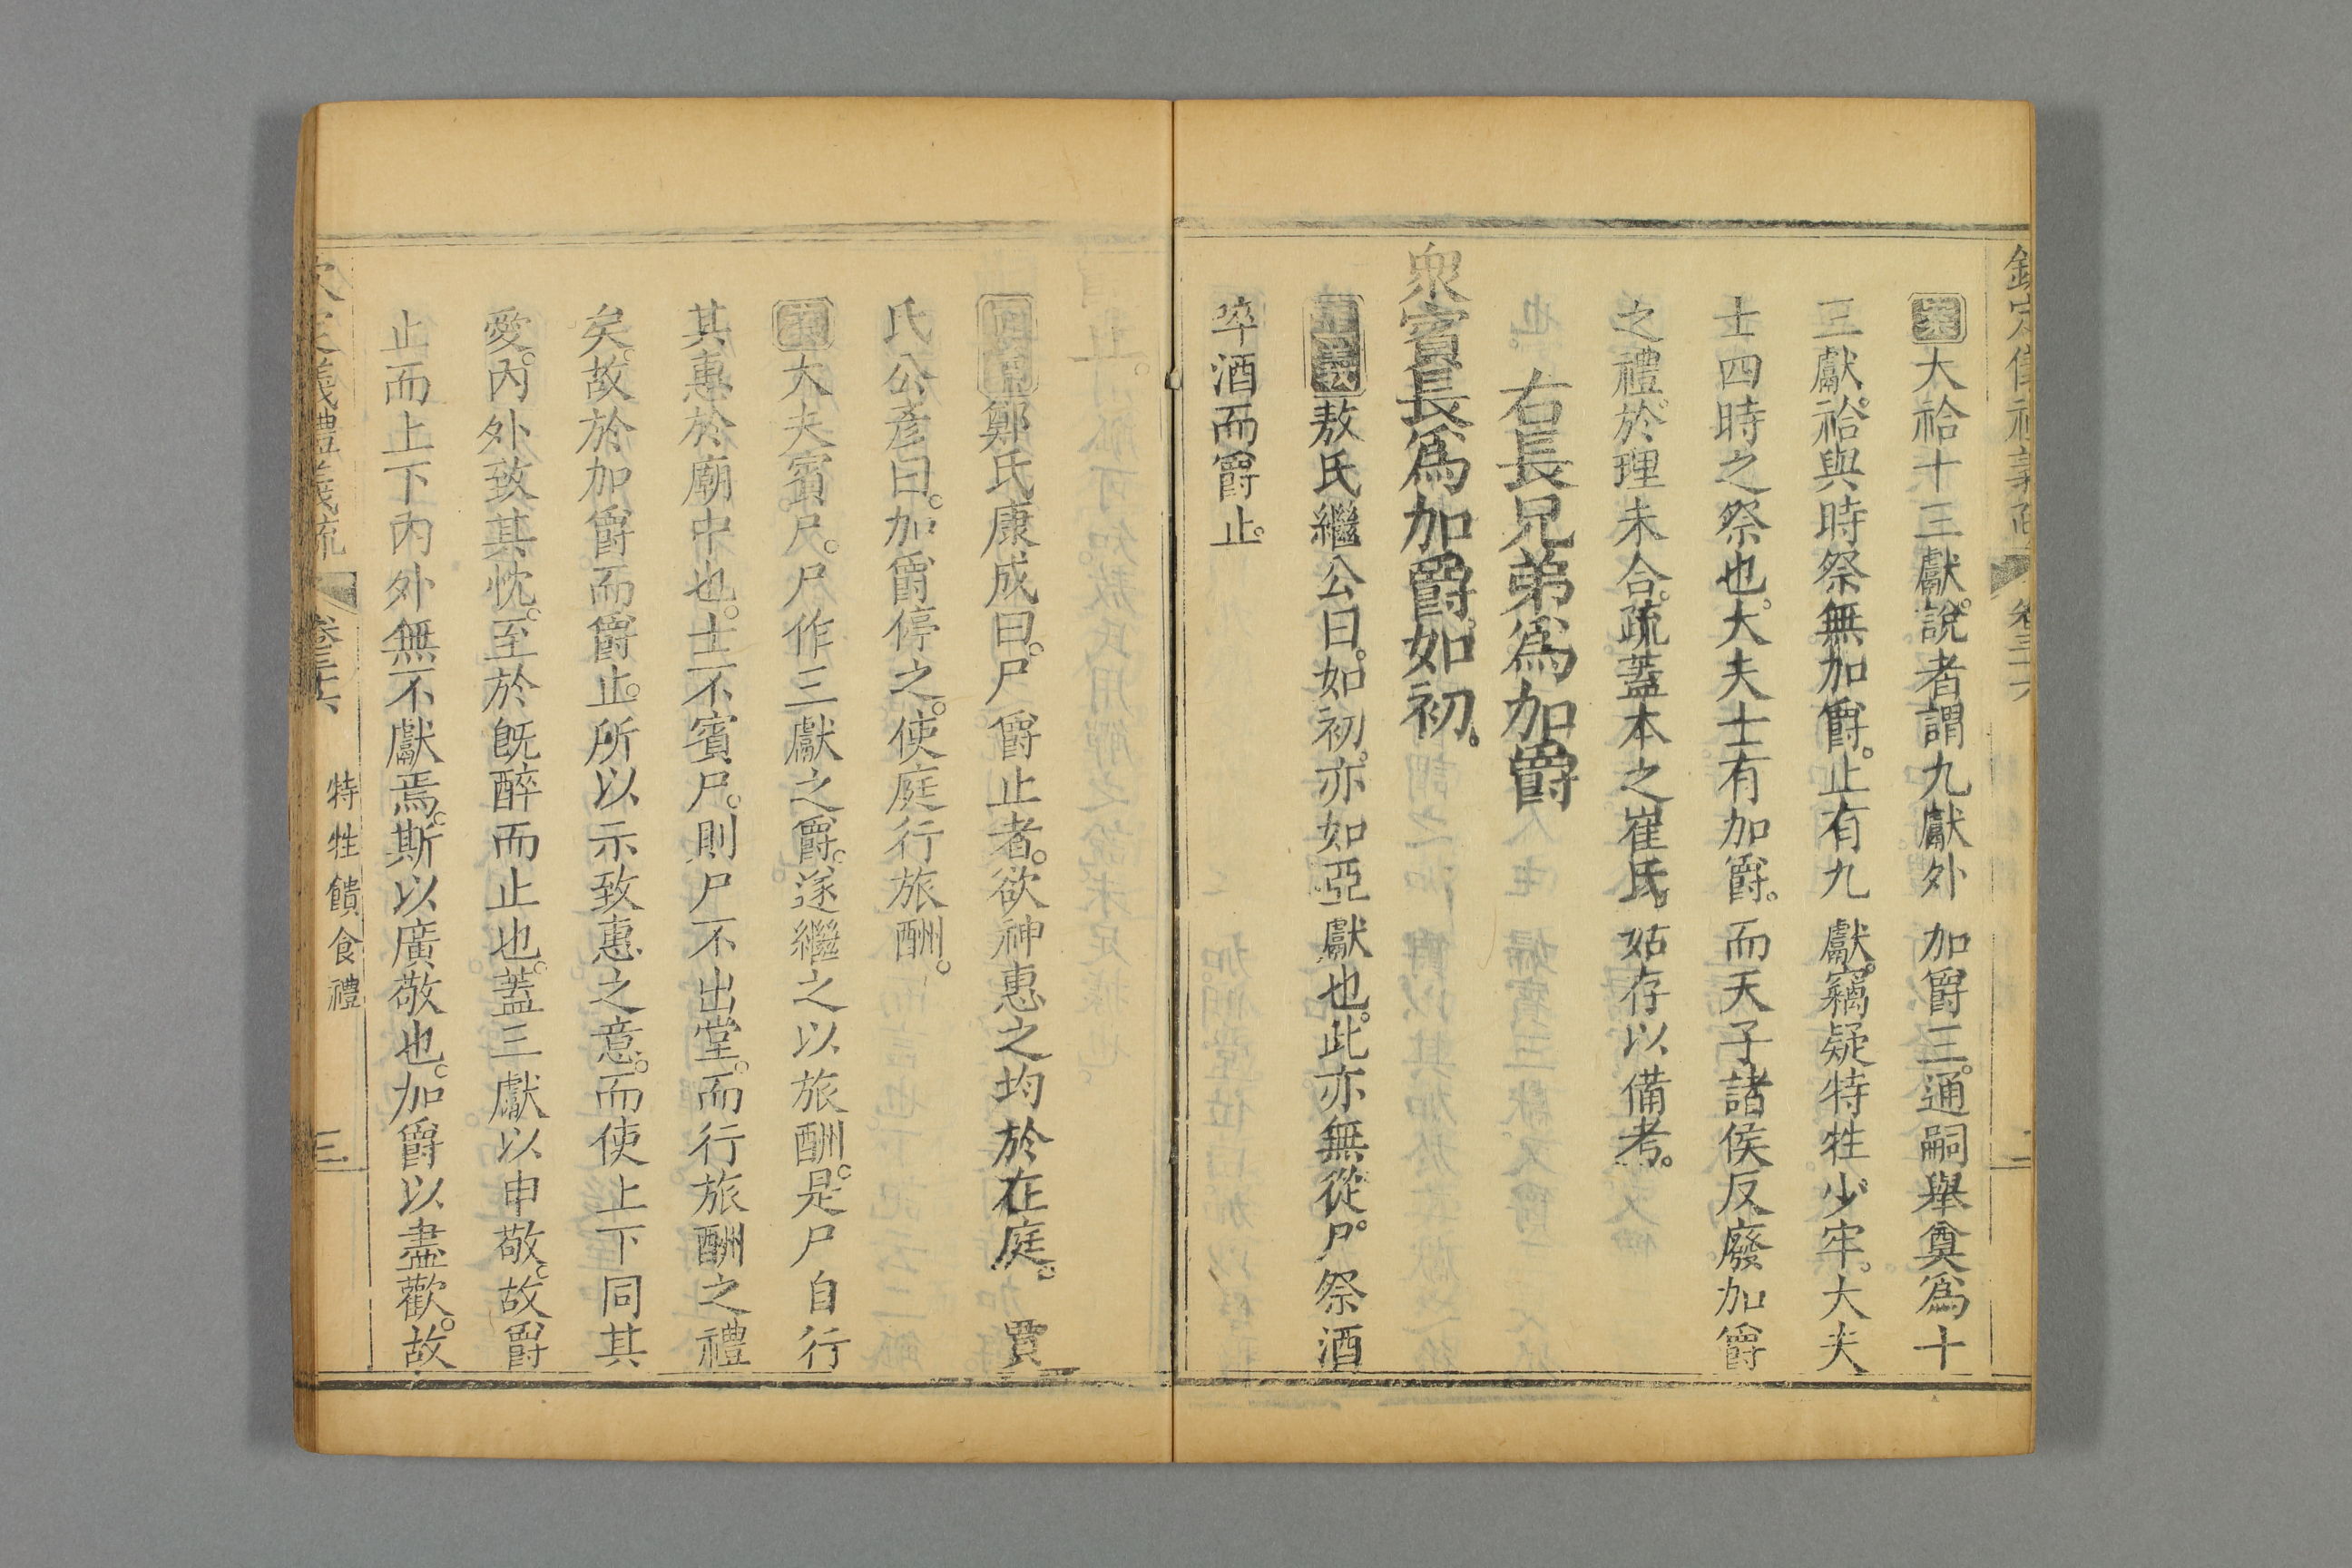 案大祫十三獻。說者謂九獻外加爵三。通嗣舉奠爲十
三獻。祫與時祭無加爵。止有九獻。竊疑特牲少牢。大夫
士四時之祭也。大夫士有加爵。而天子諸侯反廢加爵
之禮。於理未合。疏蓋本之崔氏。姑存以備考。
右長兄弟爲加爵
衆賓長爲加爵如初。
正義敖氏繼公曰。如初。亦如亞獻也。此亦無從。尸祭酒
啐酒而爵止。
鄭氏康成曰。尸爵止者。欲神惠之均於在庭。 賈
氏公彥曰。加爵停之。使庭行旅酬。
案大夫賓尸。尸作三獻之爵。遂繼之以旅酬。是尸自行
其惠於廟中也。士不賓尸。則尸不出堂。而行旅酬之禮
矣。故於加爵而爵止。所以示致惠之意。而使上下同其
愛。內外致其忱。至於旣醉而止也。蓋三獻以申敬。故爵
止而上下內外無不獻焉。斯以廣敬也。加爵以盡歡。故
義禮義疏 卷三十六 特牲饋食禮 三